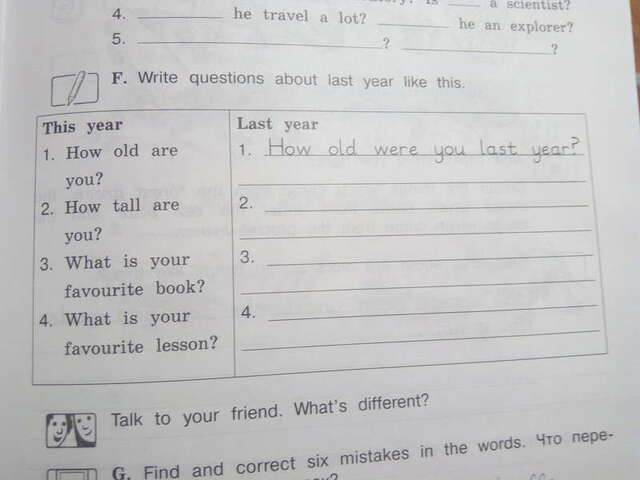 a scientist?
4. ________ he travel a lot? ________ he an explorer?
5. ________? ________?
F. Write questions about last year like this.
This year
1. How old are
you?
2. How tall are
you?
3. What is your
favourite book?
4. What is your
favourite lesson?
Last year
1. How old were you last year?
2.
3.
4.
Talk to your friend. What's different?
G. Find and correct six mistakes in the words. Что пере-